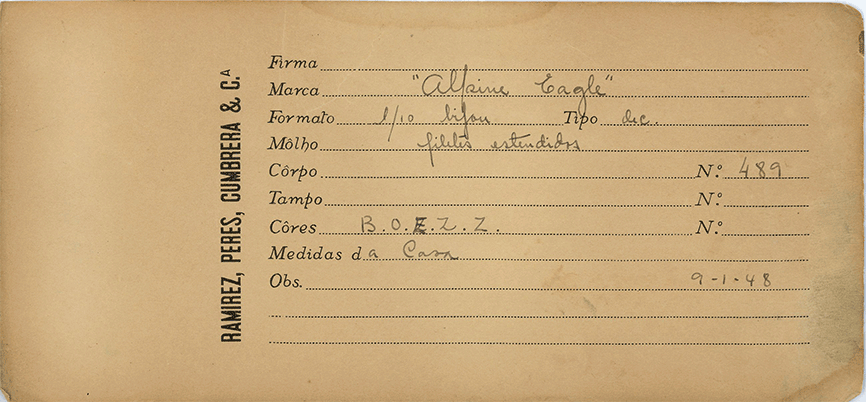 RAMIREZ, PERES, CUMBRERA & C.ᴬ
Firma
Marca "Alpine Eagle"
Formato 1/10 bijou Tipo dec.
Môlho filetes estendidos
Côrpo N.º 489
Tampo N.º
Côres B.O.E.Z.Z. N.º
Medidas da Casa
Obs. 9-1-48